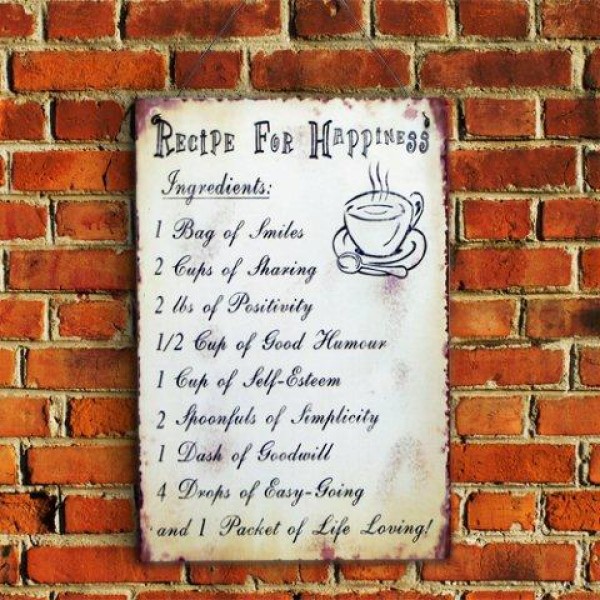 Recipe For Happiness
Ingredients:
1 Bag of Smiles
2 Cups of Sharing
2 lbs of Positivity
1/2 Cup of Good Humour
1 Cup of Self-Esteem
2 Spoonfuls of Simplicity
1 Dash of Goodwill
4 Drops of Easy-Going
and 1 Packet of Life Loving!